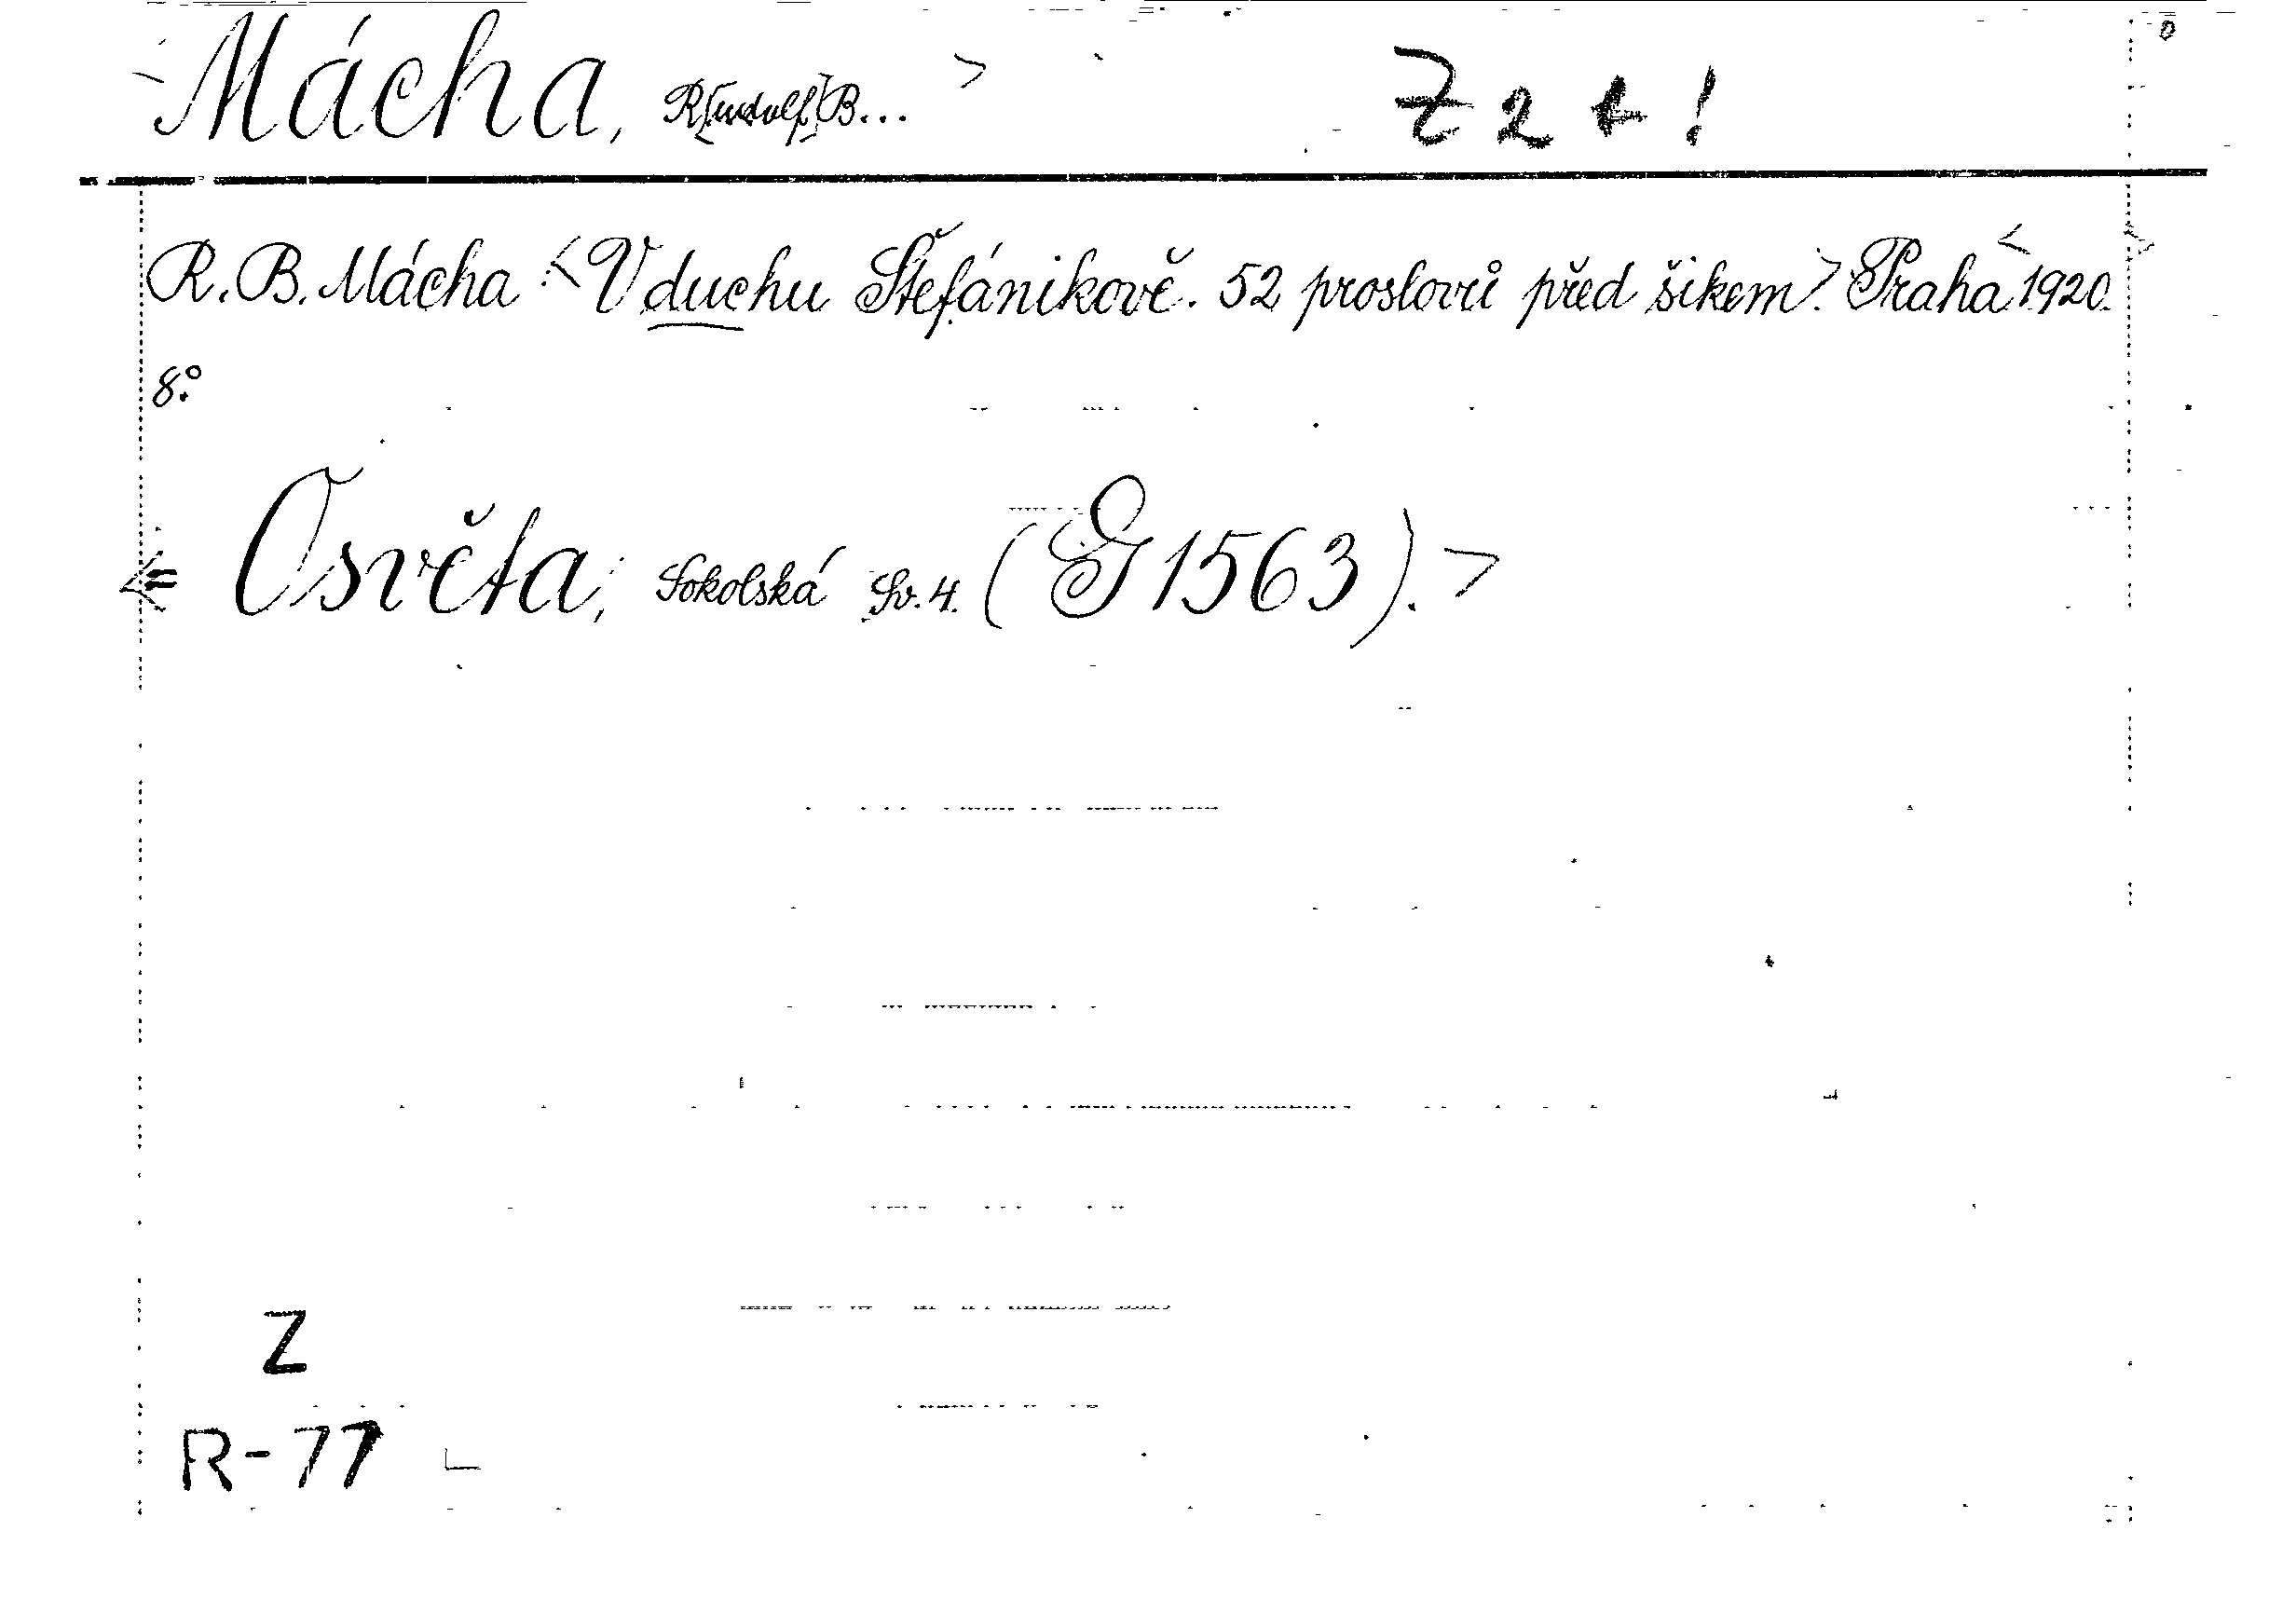 Mácha, R[udolf] B... > Z 2 t !
R. B. Mácha : < V duchu Štefánikově. 52 proslovů před šikem >. Praha < 1920. >
8°.
< = Osvěta, Sokolská Sv. 4. (G 1563). >
Z
R-77